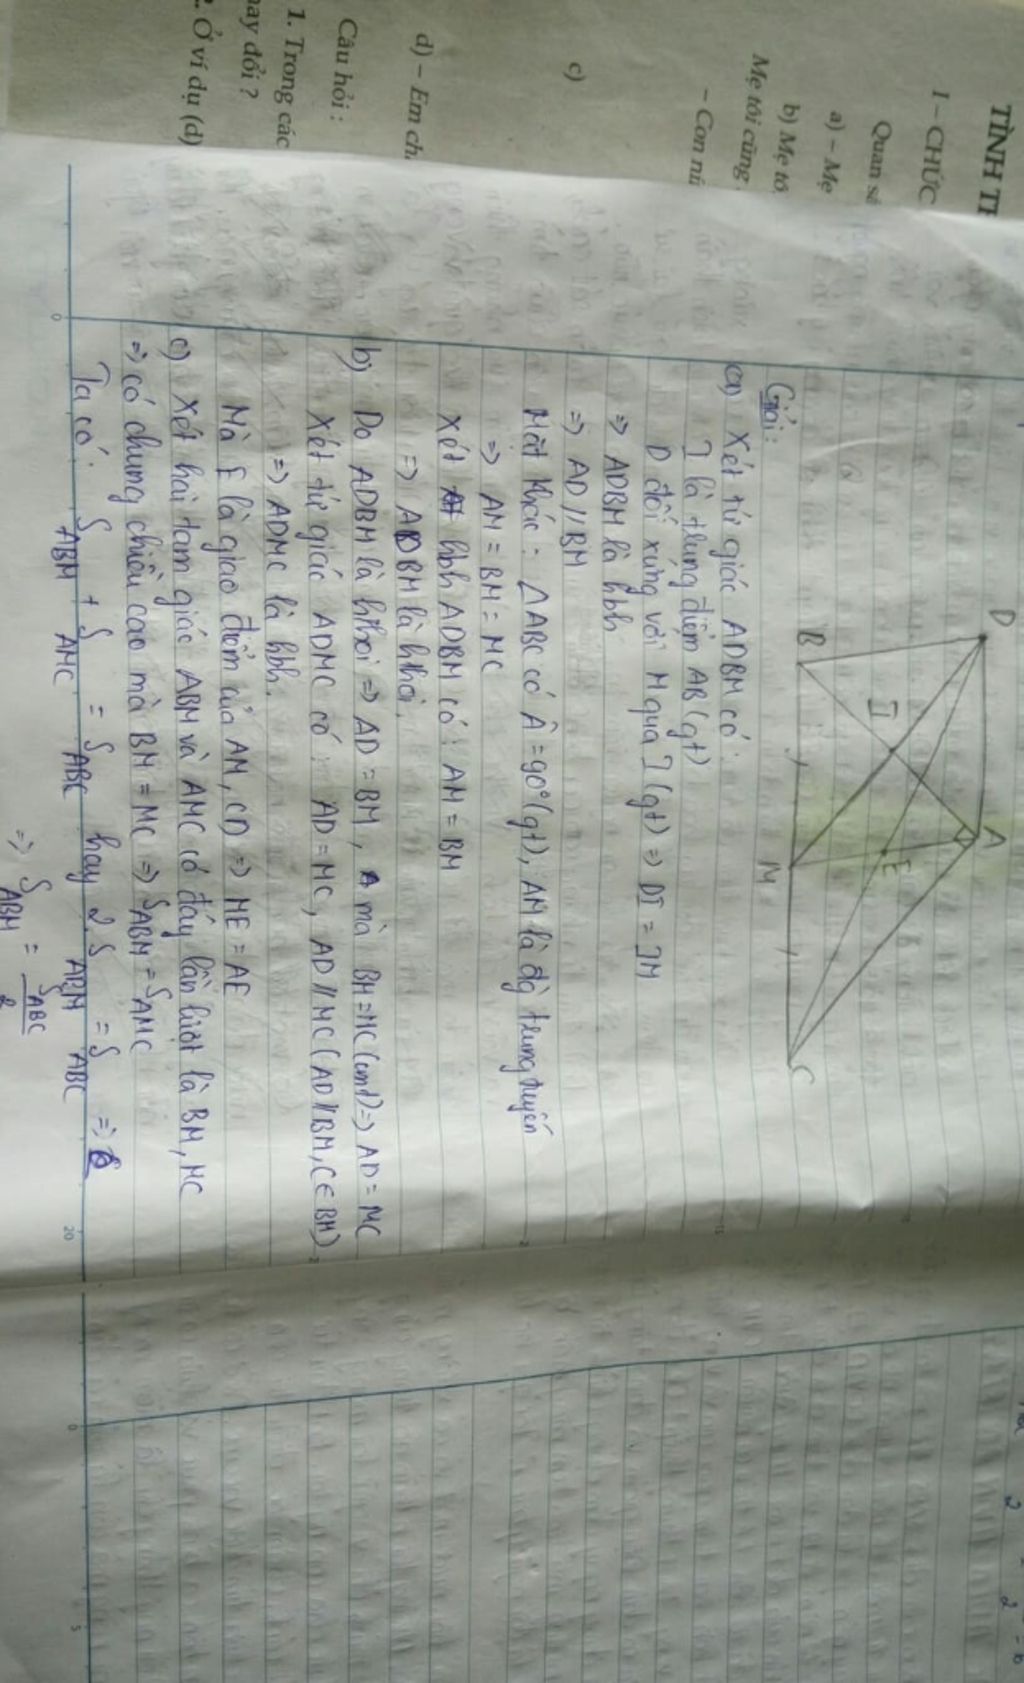 TÌNH
I – CHỨC
Quan
a) – Mẹ
b) Mẹ
Mẹ tôi cũng
– Con
c)
d) – Em
Câu hỏi :
1. Trong các
đổi ?
Ở ví dụ (d)
D
A
B
I
E
M
C
Giải:
a) Xét tứ giác ADBM có:
I là trung điểm AB (gt)
D đối xứng với M qua I (gt) => DI = IM
=> ADBM là hbh
=> AD // BM
Mặt khác: △ABC có Â = 90° (gt), AM là đg trung tuyến
=> AM = BM = MC
Xét hbh ADBM có: AM = BM
=> ADBM là hthoi.
b) Do ADBM là hthoi => AD = BM, mà BM = MC (cmt) => AD = MC
Xét tứ giác ADMC có: AD = MC, AD // MC (AD // BM, C ∈ BM)
=> ADMC là hbh.
Mà E là giao điểm của AM, CD => ME = AE
c) Xét hai tam giác ABM và AMC có đáy lần lượt là BM, MC
=> có chung chiều cao mà BM = MC => S ABM = S AMC
Ta có: S ABM + S AMC = S ABC hay 2.S ABM = S ABC =>
=> S ABM = S ABC / 2
0
20
0
5